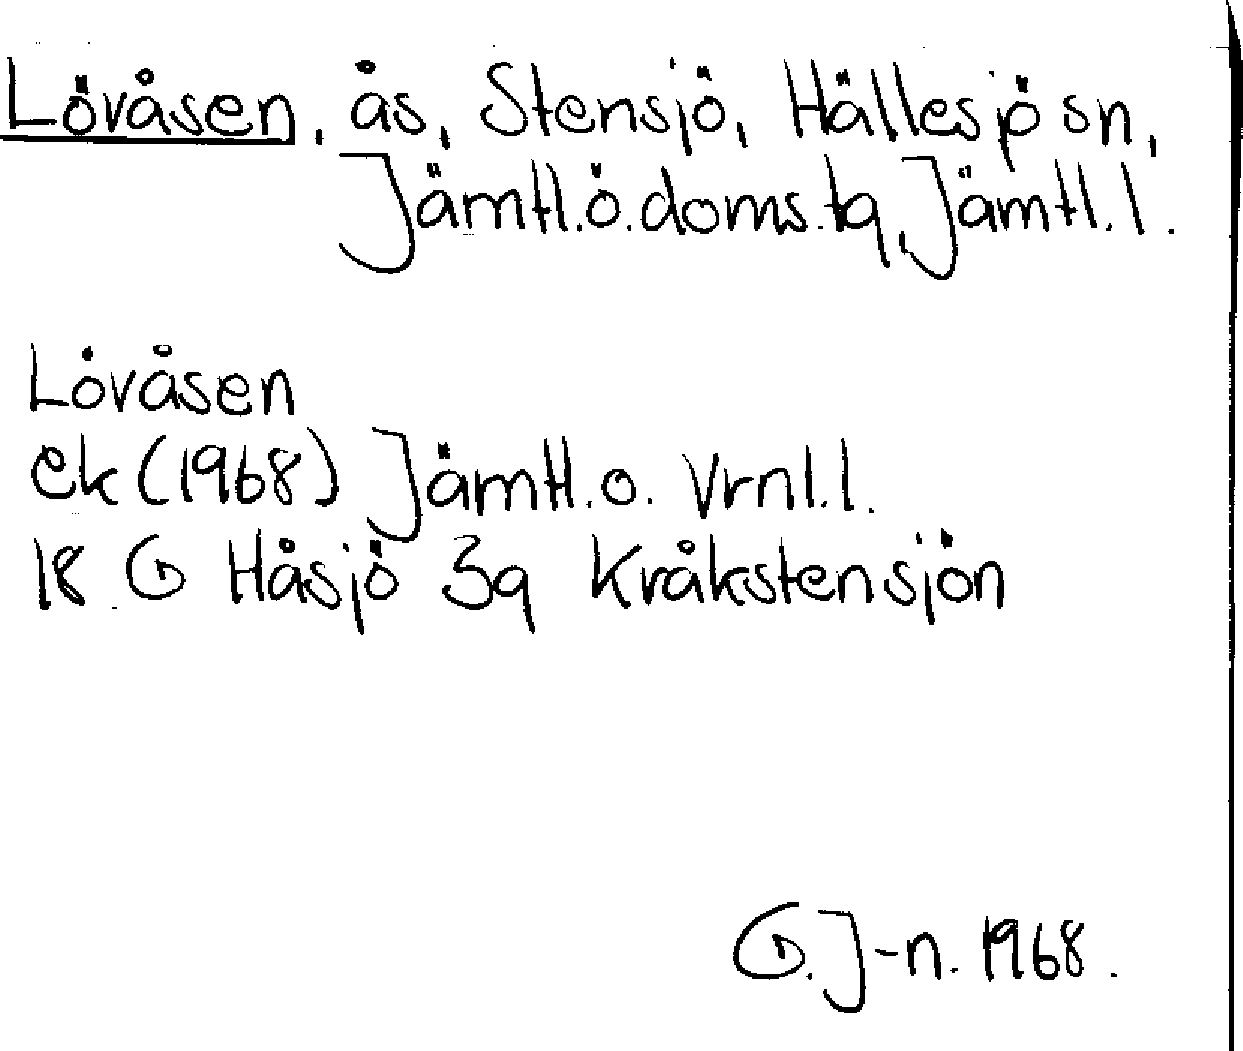 Lövåsen, ås, Stensjö, Hällesjö sn,
Jämtl.ö.doms.tg, Jämtl.l.
Lövåsen
ek (1968) Jämtl.o. Vrnl.l.
18 G Håsjö 3g Kråkstensjön
G.J-n. 1968.